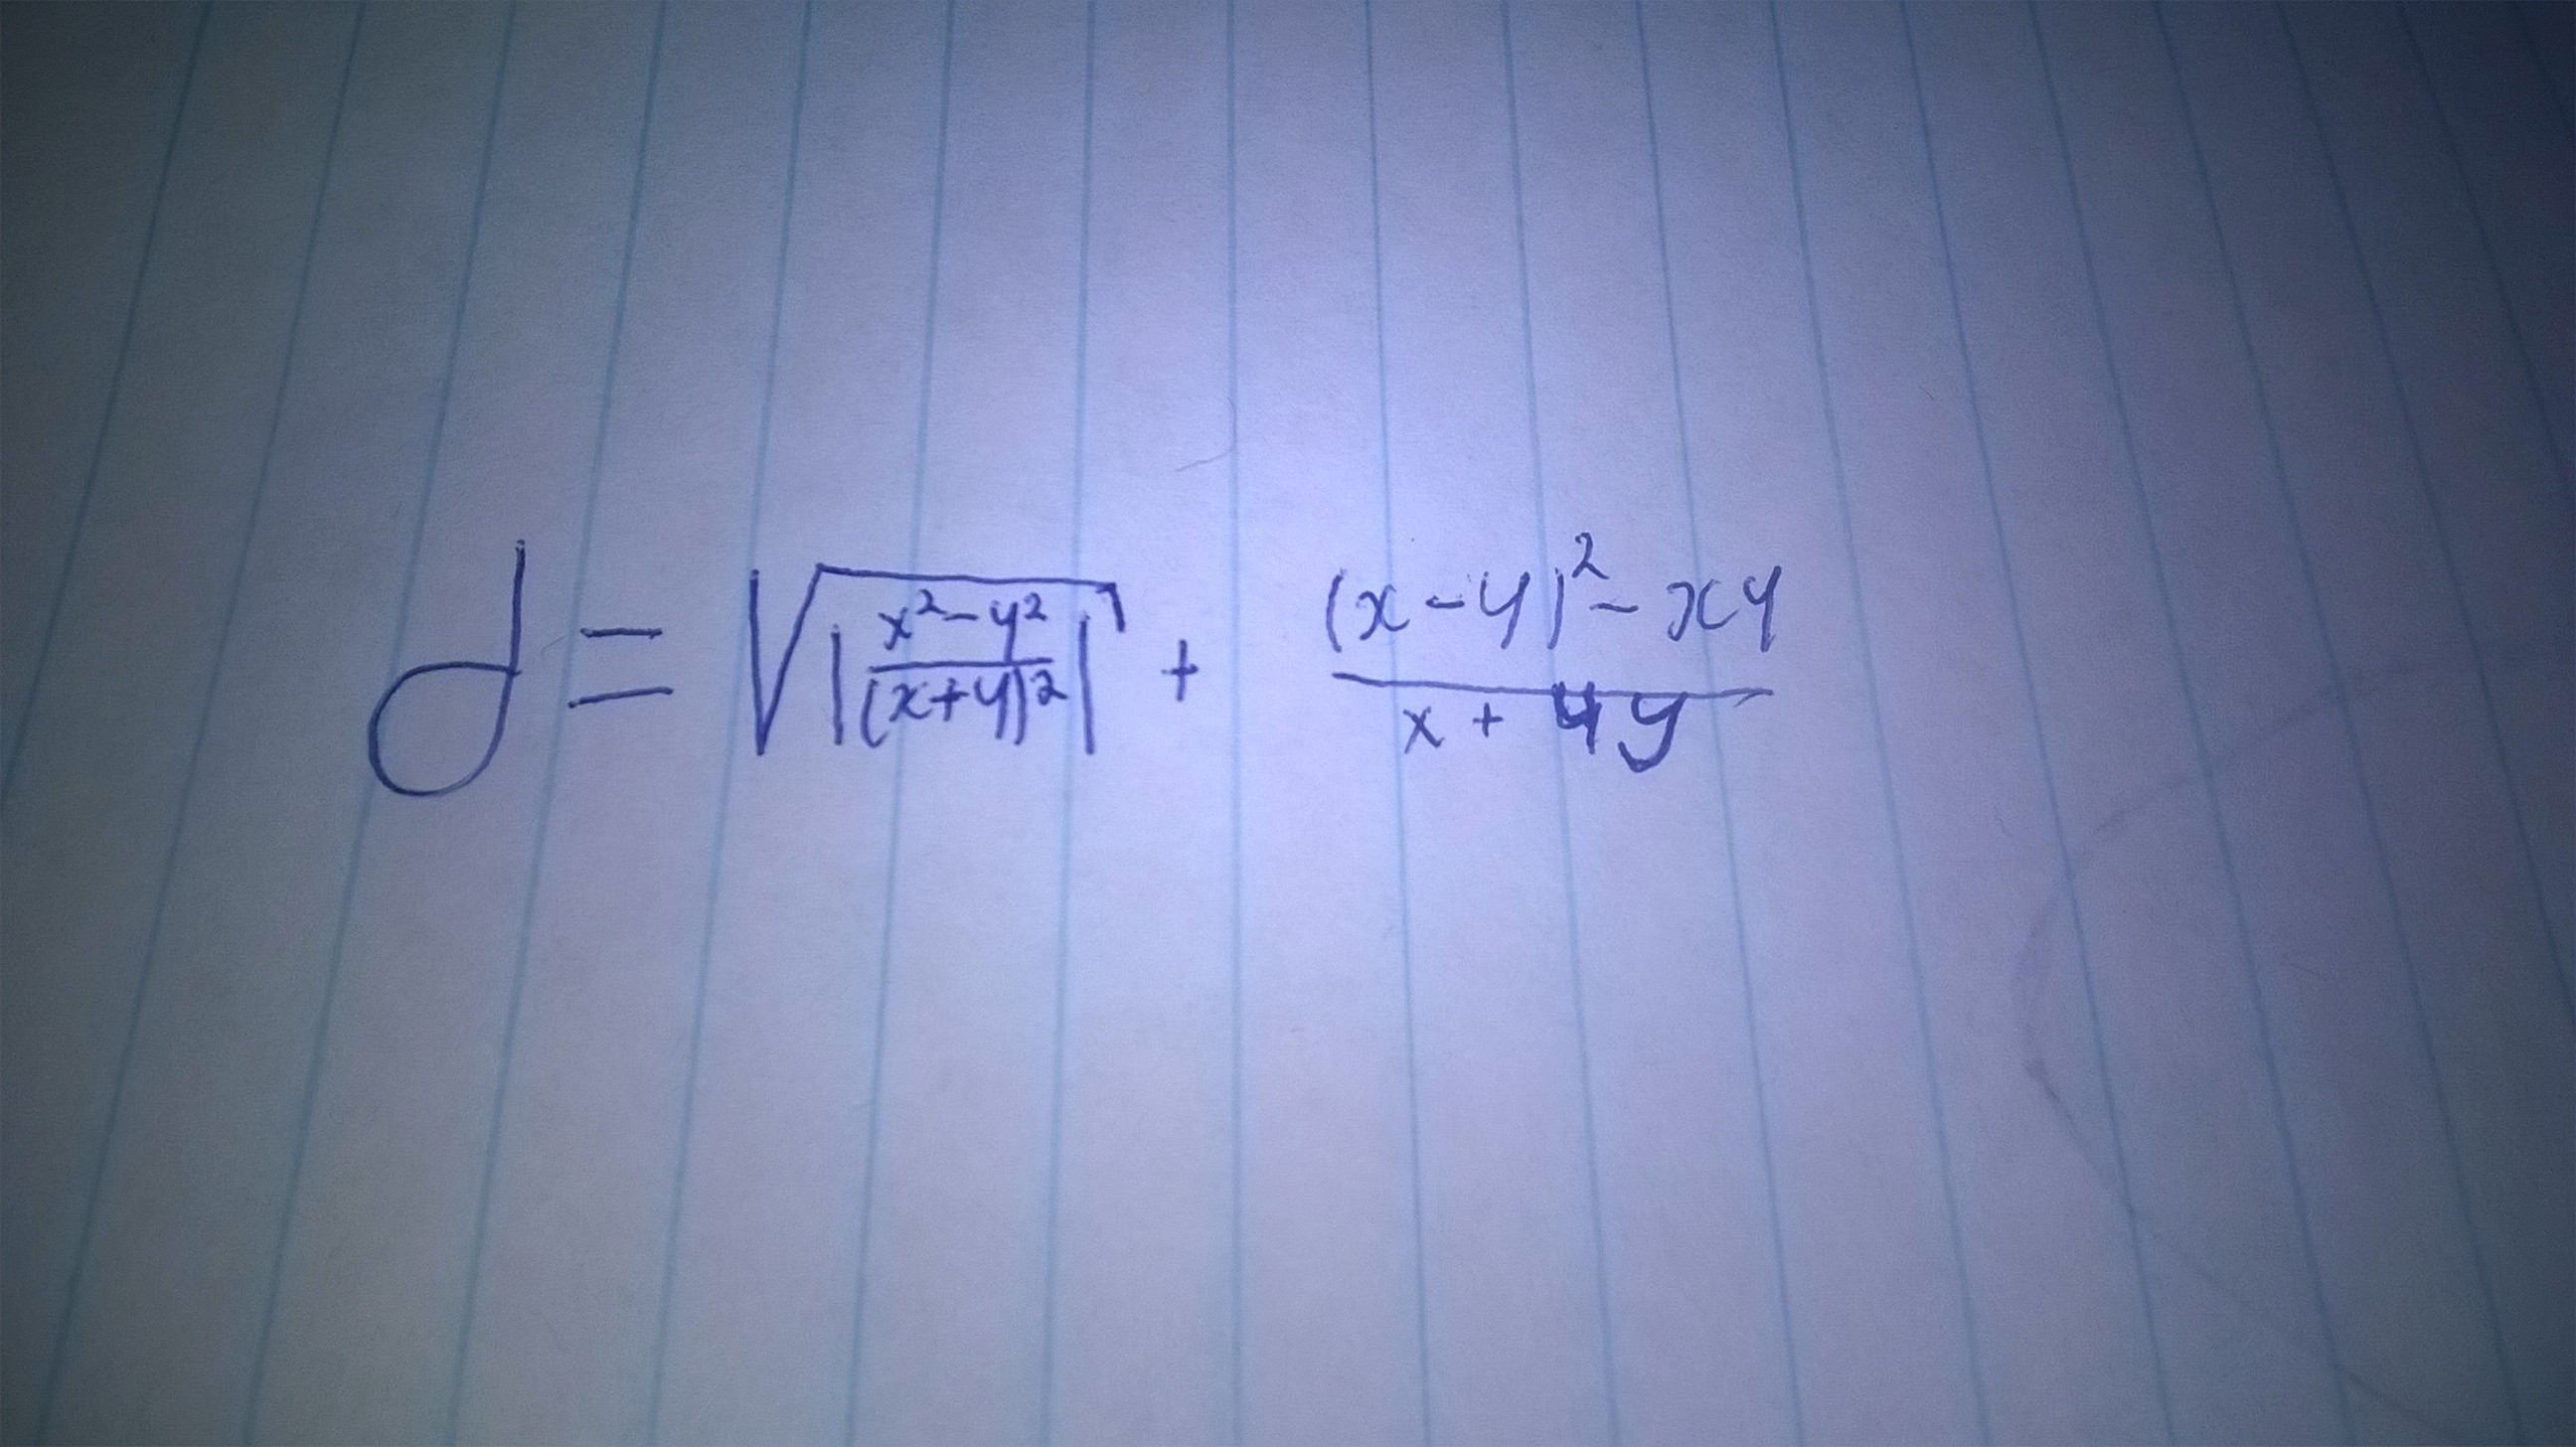 d = √|(x² - y²)/(x+y)²| + ((x-y)² - xy)/(x + 4y)